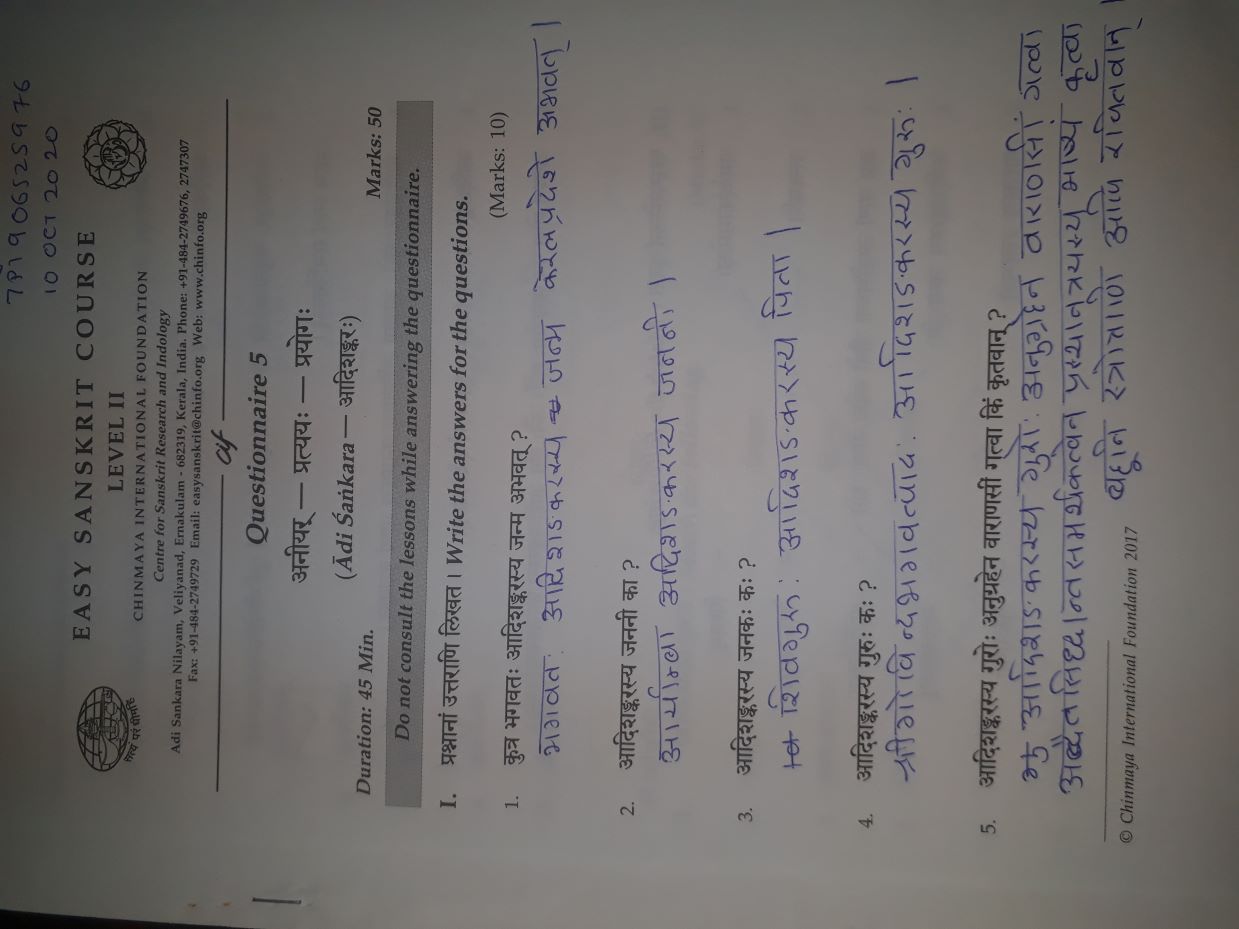 7P1906525976
10 OCT 2020
EASY SANSKRIT COURSE
LEVEL II
CHINMAYA INTERNATIONAL FOUNDATION
Centre for Sanskrit Research and Indology
Adi Sankara Nilayam, Veliyanad, Ernakulam - 682319, Kerala, India. Phone: +91-484-2749676, 2747307
Fax: +91-484-2749729 Email: easysanskrit@chinfo.org Web: www.chinfo.org
सत्यं परं धीमहि
cif
Questionnaire 5
अनीयर् — प्रत्ययः — प्रयोगः
(Ādi Śaṅkara — आदिशङ्करः)
Duration: 45 Min.
Marks: 50
Do not consult the lessons while answering the questionnaire.
I. प्रश्नानां उत्तराणि लिखत । Write the answers for the questions.
(Marks: 10)
1. कुत्र भगवतः आदिशङ्करस्य जन्म अभवत् ?
भगवतः आदिशङ्करस्य जन्म केरलप्रदेशे अभवत् |
2. आदिशङ्करस्य जननी का ?
आर्याम्बा आदिशङ्करस्य जननी |
3. आदिशङ्करस्य जनकः कः ?
शिवगुरुः आदिशङ्करस्य पिता |
4. आदिशङ्करस्य गुरुः कः ?
श्रीगोविन्दभगवत्पादः आदिशङ्करस्य गुरुः |
5. आदिशङ्करस्य गुरोः अनुग्रहेन वाराणसीं गत्वा किं कृतवान् ?
आदिशङ्करस्य गुरोः अनुग्रहेन वाराणसीं गत्वा
अद्वैतसिध्दान्तसमर्थकत्वेन प्रस्थानत्रयस्य भाष्यं कृत्वा
बहूनि स्त्रोत्ताणि अपि रचितवान् |
© Chinmaya International Foundation 2017